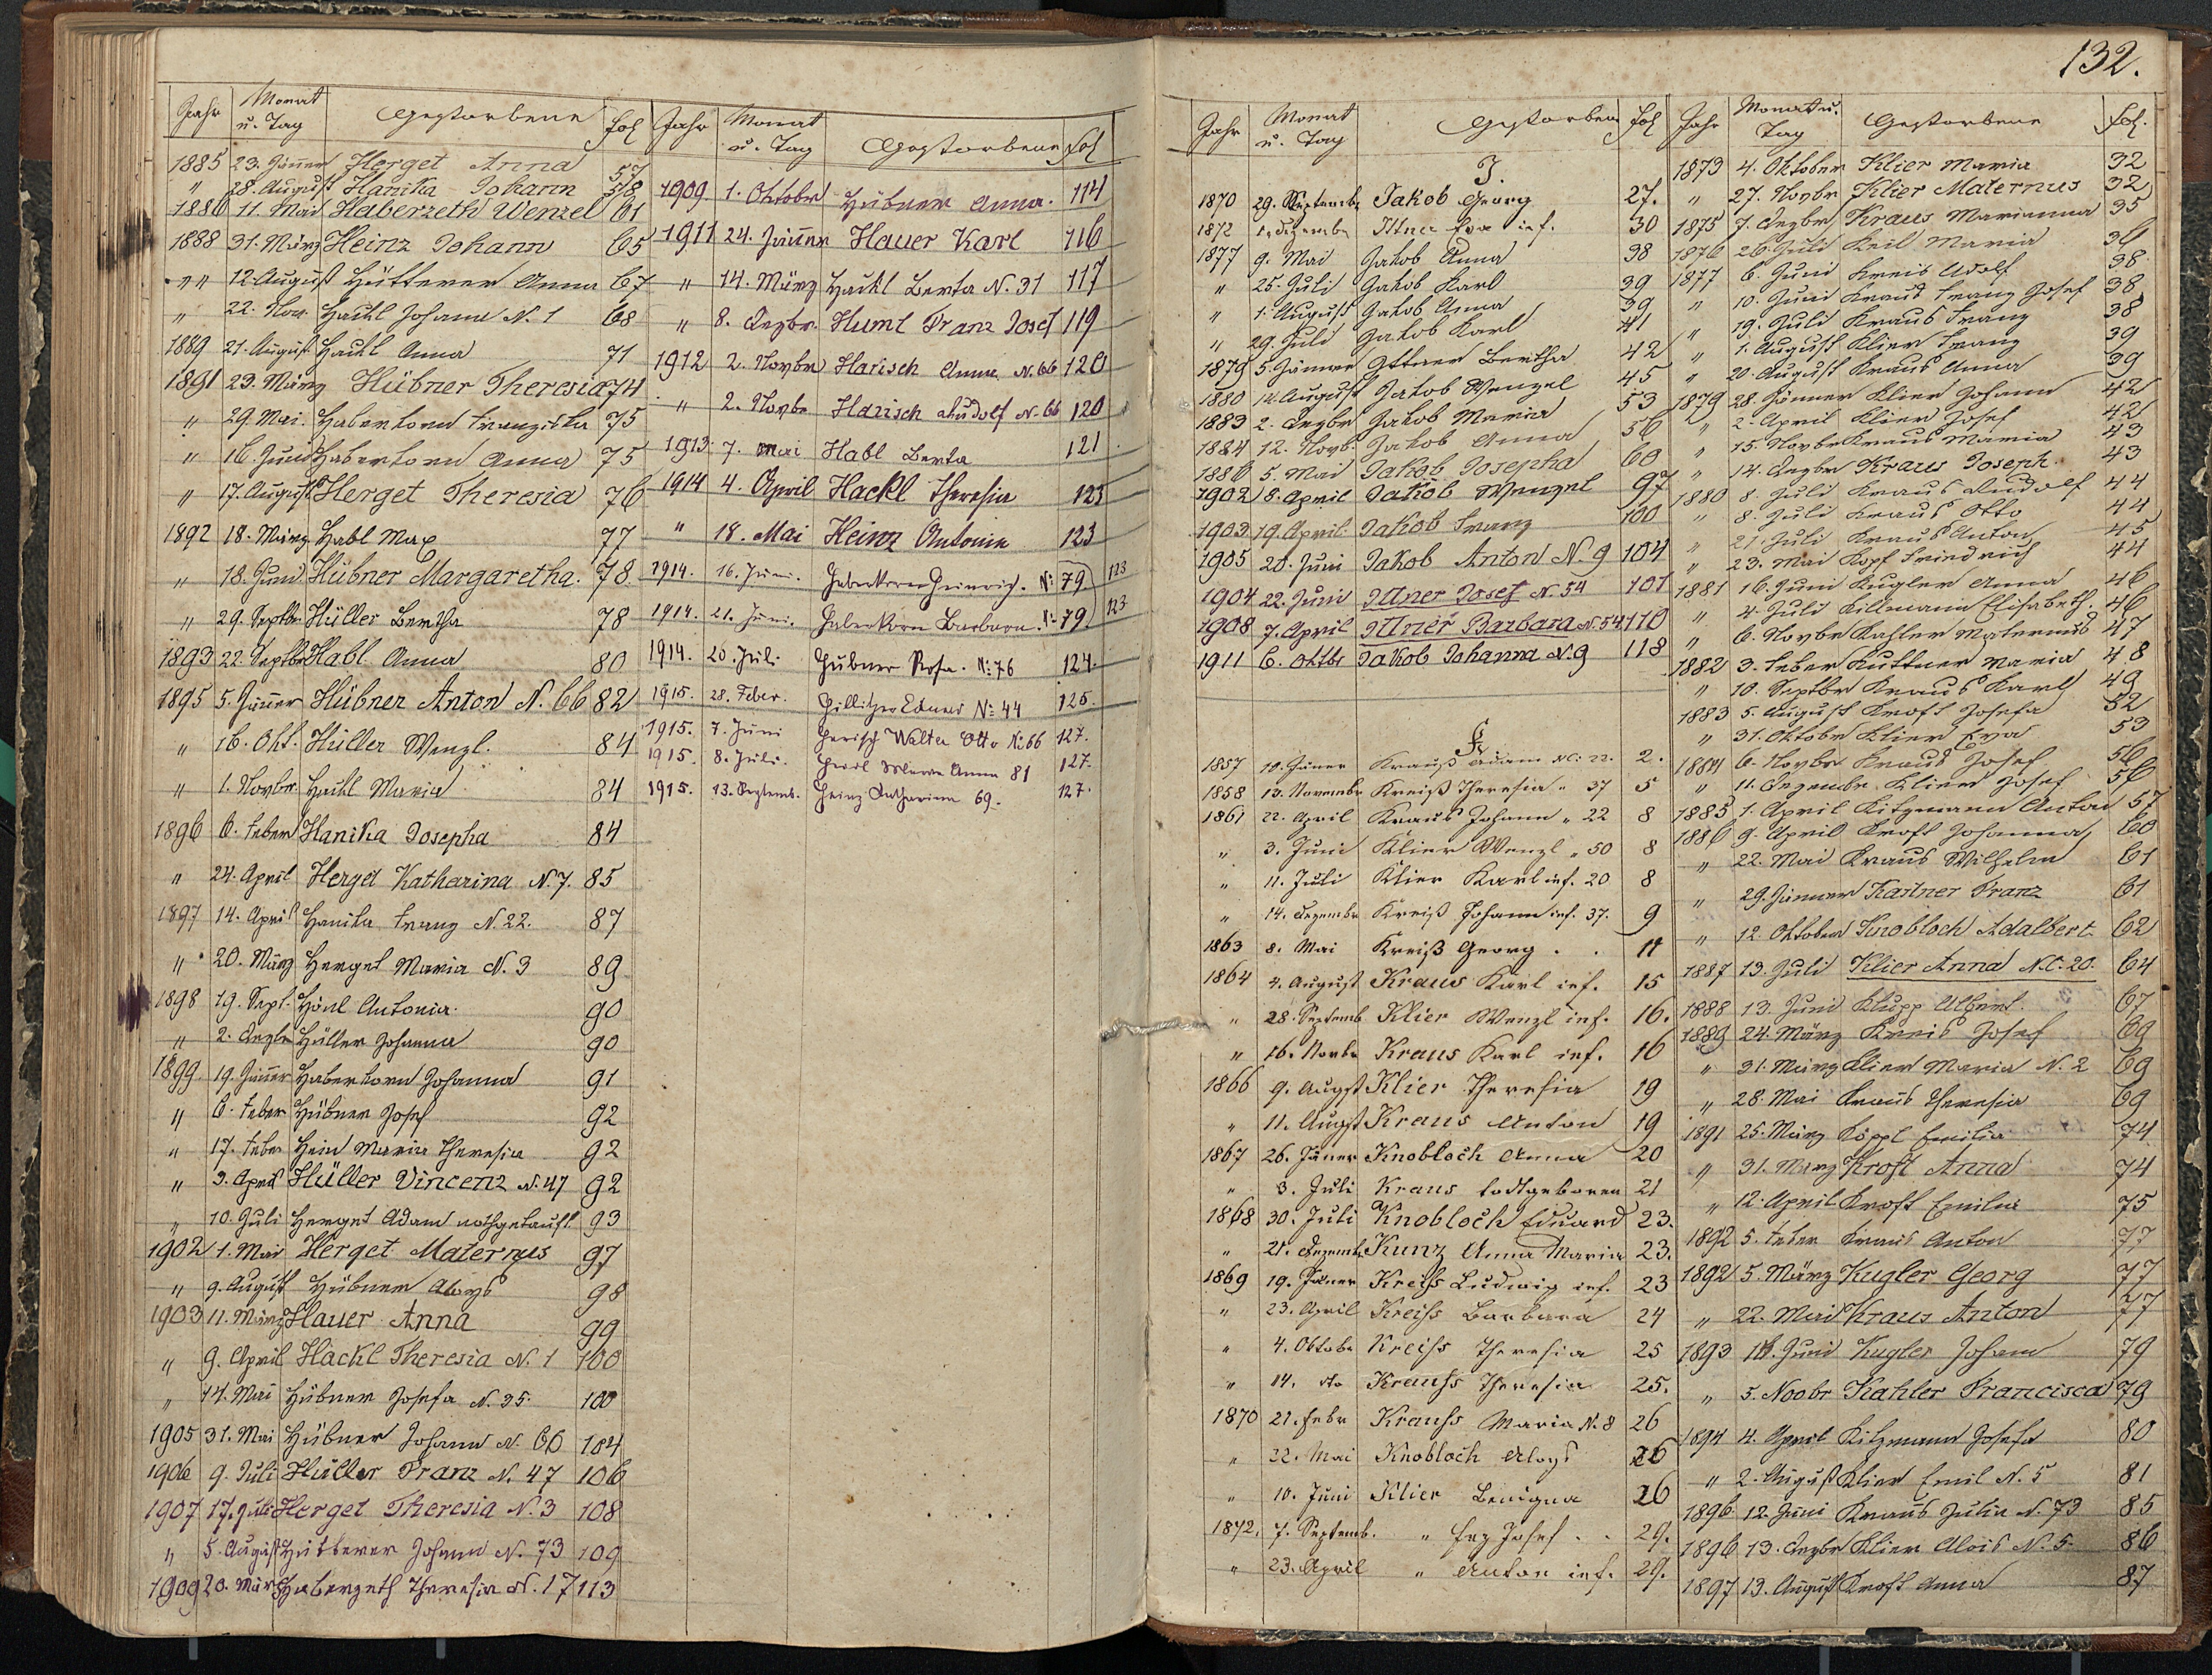 132.
Jahr Monat u. Tag Gestorbene fol
1885 23. Jänner Herget Anna 57
" 28. August Hanika Johann 58
1886 11. Mai Haberzeth Wenzel 61
1888 31. März Heinz Johann 65
" " 12. August Hütterer Anna 67
" 22. Nov. Hackl Johann N. 1 68
1889 21. August Hackl Anna 71
1891 23. März Hübner Theresia 74
" 29. Mai Haberkorn Franziska 75
" 16. Juni Haberkorn Anna 75
" 17. August Herget Theresia 76
1892 18. März Habl Max 77
" 18. Juni Hübner Margaretha. 78
" 29. Septbr Hüller Bertha 78
1893 22. Septbr Habl Anna 80
1895 5. Jänner Hübner Anton N. 66 82
" 16. Okt. Hüller Wenzl. 84
" 1. Novbr. Hackl Maria 84
1896 6. Feber Hanika Josepha 84
" 24. April Herget Katharina N. 7. 85
1897 14. April Hanika Franz N. 22. 87
" 20. März Herget Maria N. 3 89
1898 19. Sept. Hönl Antonia. 90
" 2. Dezbr Hüller Johanna 90
1899 19. Jänner Haberkorn Johanna 91
" 6. Feber Hübner Josef 92
" 17. Feber Hein Maria Theresia 92
" 3. April Hüller Vincenz N. 47 92
" 10. Juli Herget Adam nothgetauft 93
1902 1. Mai Herget Maternus 97
" 9. August Hübner Aloys 98
1903 11. März Hauer Anna 99
" 9. April Hackl Theresia N. 1 100
" 14. Mai Hübner Josefa N. 35. 100
1905 31. Mai Hübner Johann N. 66 104
1906 9. Juli Hüller Franz N. 47 106
1907 17. Juli Herget Theresia N. 3 108
" 5. August Hütterer Johann N. 73 109
1909 20. März Haberzeth Theresia N. 17 113
Jahr Monat u. Tag Gestorbene fol
1909. 1. Oktober Hübner Anna. 114
1911 24. Jänner Hauer Karl 116
" 14. März Hackl Berta N. 31 117
" 8. Dezbr. Huml Franz Josef 119
1912 2. Novbr Harisch Anna N. 66 120
" 2. Novbr Harisch Rudolf N. 66 120
1913 7. Mai Habl Berta 121
1914 4. April Hackl Theresia 123
" 18. Mai Heinz Antonia 123
1914. 16. Juni. Haberkorn Heinrich. N: 79. 123
1914. 21. Juni. Haberkorn Barbara. N: 79. 123
1914. 20. Juli Hübner Rosa. N: 76 124.
1915. 28. Feber. Hillitzer Eduard N: 44 125.
1915. 7. Juni Harisch Walter Otto N: 66 127.
1915. 8. Juli. Anna 81 127.
1915. 13. Septemb. Heinz Katharina 69. 127.
Jahr Monat u. Tag Gestorbene fol
J.
1870 29. Septembr Jakob Georg 27.
1872 Dezembr Ittner Eva inf. 30
1877 9. Mai Jakob Anna 38
" 25. Juli Jakob Karl 39
" 1. August Jakob Anna 39
" 29. Juli Jakob Karl 41
1879 5. Jänner Ittner Bertha 42
1880 14. August Jakob Wenzel 45
1883 2. Dezbr Jakob Maria 53
1884 12. Novb. Jakob Anna 56
1886 5. Mai Jakob Josepha 60
1902 8. April Jakob Wenzel 97
1903 19. April. Jakob Franz 100
1905 20. Juni Jakob Anton N. 9 104
1904 22. Juni Ittner Josef N. 54 101
1908 7. April Ittner Barbara N. 54 110
1911 6. Oktbr Jakob Johanna N. 9 118
K.
1857 10. Jäner Krauß Adam NC: 22. 2.
1858 13. Novembr Kreiß Theresia " 37 5
1861 22. April Kraus Johann " 22 8
" 3. Juni Klier Wenzl " 50 8
" 11. Juli Klier Karl inf. 20 8
" 14. Dezembr Kreiß Johann inf. 37. 9
1863 8. Mai Kreiß Georg . . 11
1864 4. August Kraus Karl inf. 15
" 28. Septemb Klier Wenzl inf. 16.
" 16. Novbr Kraus Karl inf. 16
1866 9. Augst Klier Theresia 19
" 11. Augst Kraus Anton 19
1867 26. Jäner Knobloch Anna 20
" 3. Juli Kraus todtgeboren 21
1868 30. Juli Knobloch Eduard 23.
" 21. Dezemb. Kunz Anna Maria 23.
1869 19. Jäner Kreiss Ludwig inf. 23
" 23. April Kreiss Barbara 24
" 4. Oktobr Kreiss Theresia 25
" 14. dto Krauss Theresia 25.
1870 21. Febr Krauss Maria N. 8 26
" 22. Mai Knobloch Aloys 26
" 10. Juni Klier Benigna 26
1872. 7. Septemb. " Josef . . 29.
" 23. April " Anton inf. 29.
Jahr Monat u. Tag Gestorbene fol.
1873 4. Oktober Klier Maria 32
" 27. Novbr Klier Maternus 32
1875 7. Dezbr Kraus Marianna 35
1876 26. Juli Keil Maria 36
1877 6. Juni Kreis Adolf 38.
" 10. Juni Kraus Franz Josef 38
" 19. Juli Kraus Franz 38
" 1. August Klier Franz 39
" 20. August Kraus Anna 39
1879 28. Jänner Klier Johann 42
" 2. April Klier Josef 42
" 15. Novbr Kraus Maria 43
" 14. Dezbr Kraus Joseph. 43
1880 8. Juli Kraus Rudolf 44
" 8. Juli Kraus Otto 44
" 21. Juli Kraus Anton 45
" 23. Mai Kopf Friedrich 44
1881 16. Juni Kugler Anna 46
" 4. Juli Killmann Elisabeth. 46
" 6. Novbr Kahler Maternus 47
1882 3. Feber Kuttner Maria 48
" 10. Septbr Kraus Karl 49
1883 5. August Kroft Josefa 52
" 31. Oktobr Klier Eva 53
1884 6. Novbr Kraus Josef 56
" 11. Dezembr Klier Josef 56
1885 1. April Kitzmann Anton 57
1886 9. April Kroft Johanna 60
" 22. Mai Kraus Wilhelm 61
" 29. Jänner Kastner Franz 61
" 12. Oktober Knobloch Adalbert 62
1887 13. Juli Klier Anna N.C. 20. 64
1888 13. Juni Klupp Albert 67
1889 24. März Kreis Josef 69
" 31. März Klier Maria N. 2 69
" 28. Mai Kraus Theresia 69
1891 25. März Köppl Emilia 74
" 31. März Kroft Anna 74
" 12. April Kroft Emilia 75
1892 5. Feber Kraus Anton 77
1892 5. März Kugler Georg 77
" 22. Mai Kraus Anton 77
1893 Juni Kugler Johann 79
" 5. Novbr Kahler Francisca 79
1894 4. April Kitzmann Josefa 80
" 2. August Klier Emil N. 5 81
1896 12. Juni Kraus Julia N. 73 85
1896 13. Dezbr Klier Alois N. 5. 86
1897 13. August Kroft Anna 87